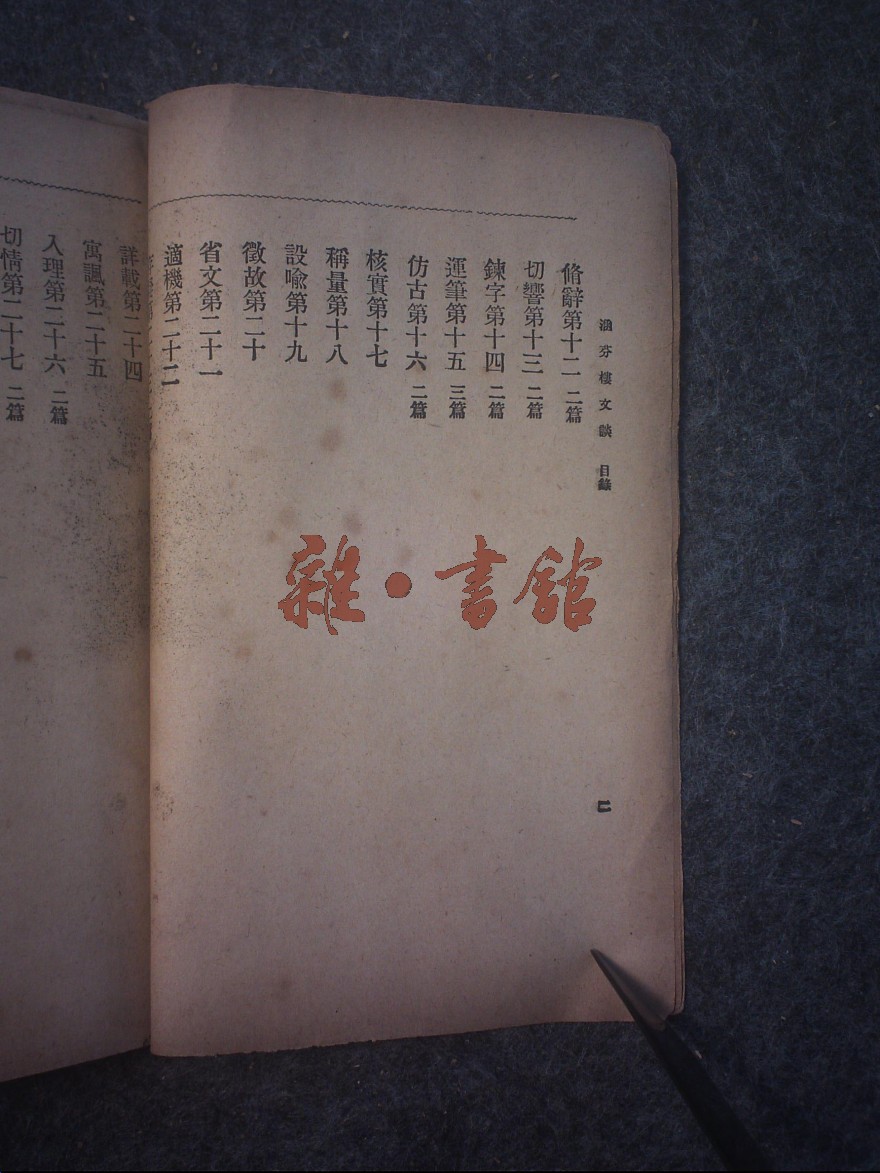 涵芬樓文談 目錄
二
脩辭第十二 二篇
切響第十三 二篇
鍊字第十四 二篇
運筆第十五 三篇
仿古第十六 二篇
核實第十七
稱量第十八
設喩第十九
徵故第二十
省文第二十一
適機第二十二
詳載第二十四
寓諷第二十五
入理第二十六 二篇
切情第二十七 二篇
雜·書館